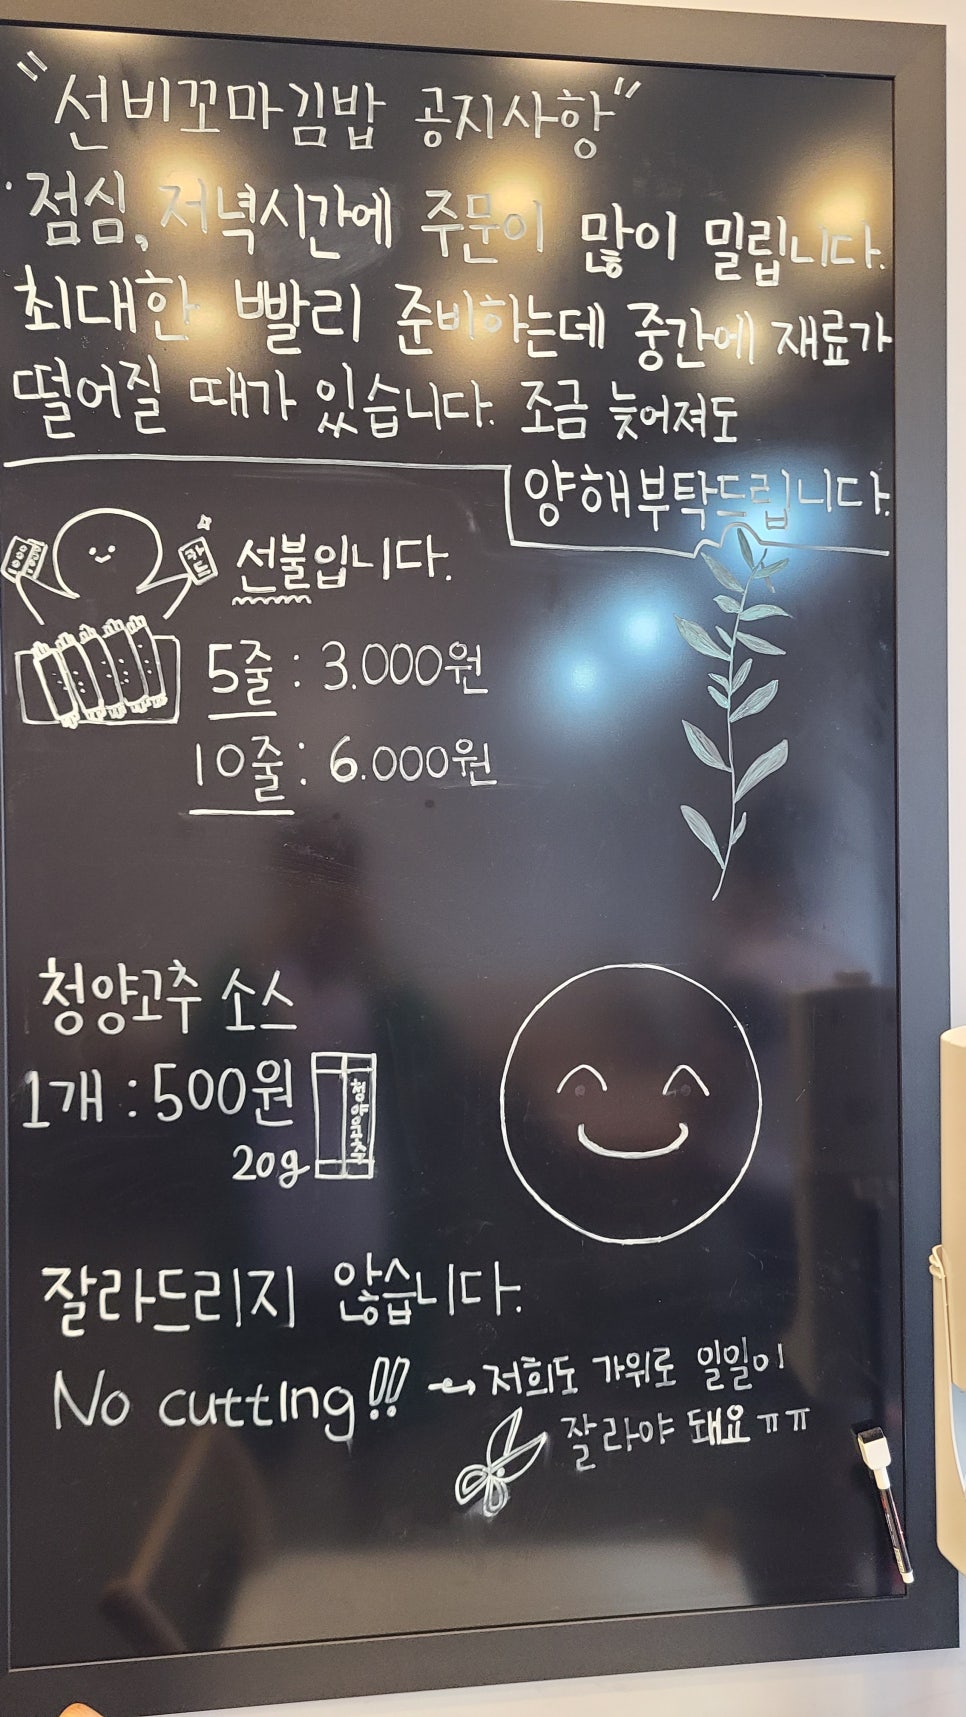 "선비꼬마김밥 공지사항"
· 점심, 저녁시간에 주문이 많이 밀립니다.
최대한 빨리 준비하는데 중간에 재료가
떨어질 때가 있습니다. 조금 늦어져도
양해부탁드립니다.
카드
선불입니다.
5줄 : 3.000원
10줄 : 6.000원
청양고추 소스
1개 : 500원
청양고추
20g
잘라드리지 않습니다.
No cutting!! → 저희도 가위로 일일이
잘라야 돼요 ㅠㅠ